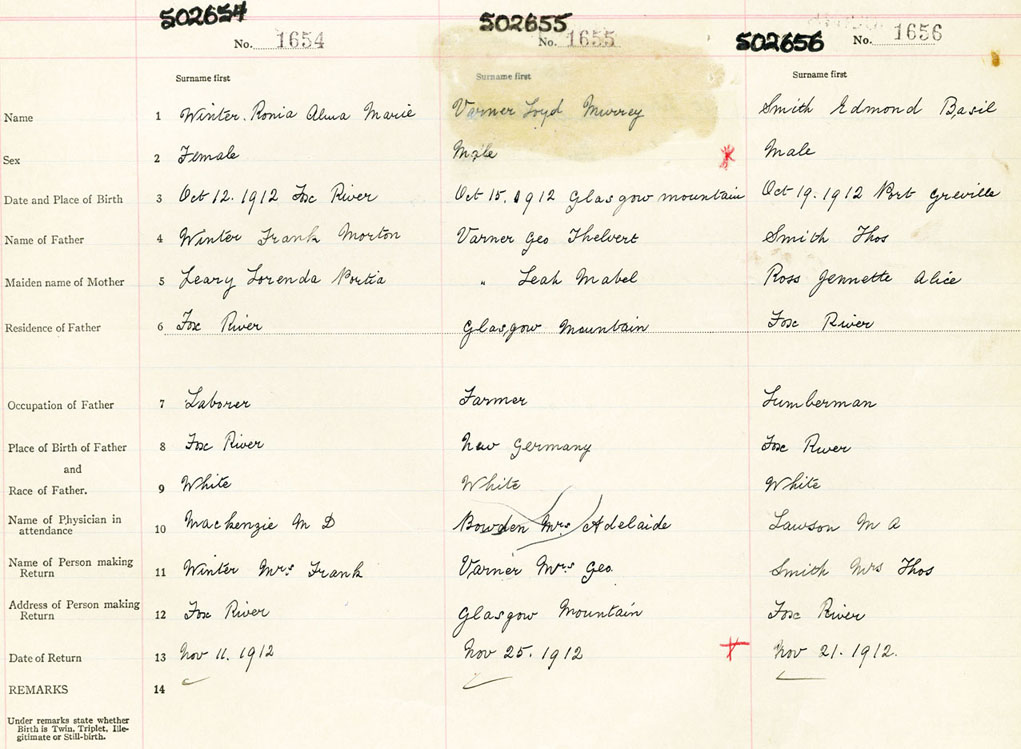 502654 502655 502656
No. 1654 No. 1655 No. 1656
Surname first Surname first Surname first
Name 1 Winter. Ronia Alma Marie Varner Loyd Murrey Smith Edmond Basil
Sex 2 Female Male Male
Date and Place of Birth 3 Oct 12. 1912 Fox River Oct 15. 1912 Glasgow mountain Oct 19. 1912 Port Greville
Name of Father 4 Winter Frank Morton Varner Geo Thelvert Smith Thos
Maiden name of Mother 5 Leary Lorenda Portia " Leah Mabel Ross Jennette Alice
Residence of Father 6 Fox River Glasgow Mountain Fox River
Occupation of Father 7 Laborer Farmer Lumberman
Place of Birth of Father 8 Fox River New Germany Fox River
and
Race of Father. 9 White White White
Name of Physician in
attendance 10 Mackenzie M D Bowden Mrs Adelaide Lawson M A
Name of Person making
Return 11 Winter Mrs Frank Varner Mrs Geo. Smith Mrs Thos
Address of Person making
Return 12 Fox River Glasgow Mountain Fox River
Date of Return 13 Nov 11. 1912 Nov 25. 1912 Nov 21. 1912.
REMARKS 14
Under remarks state whether
Birth is Twin, Triplet, Ille-
gitimate or Still-birth.